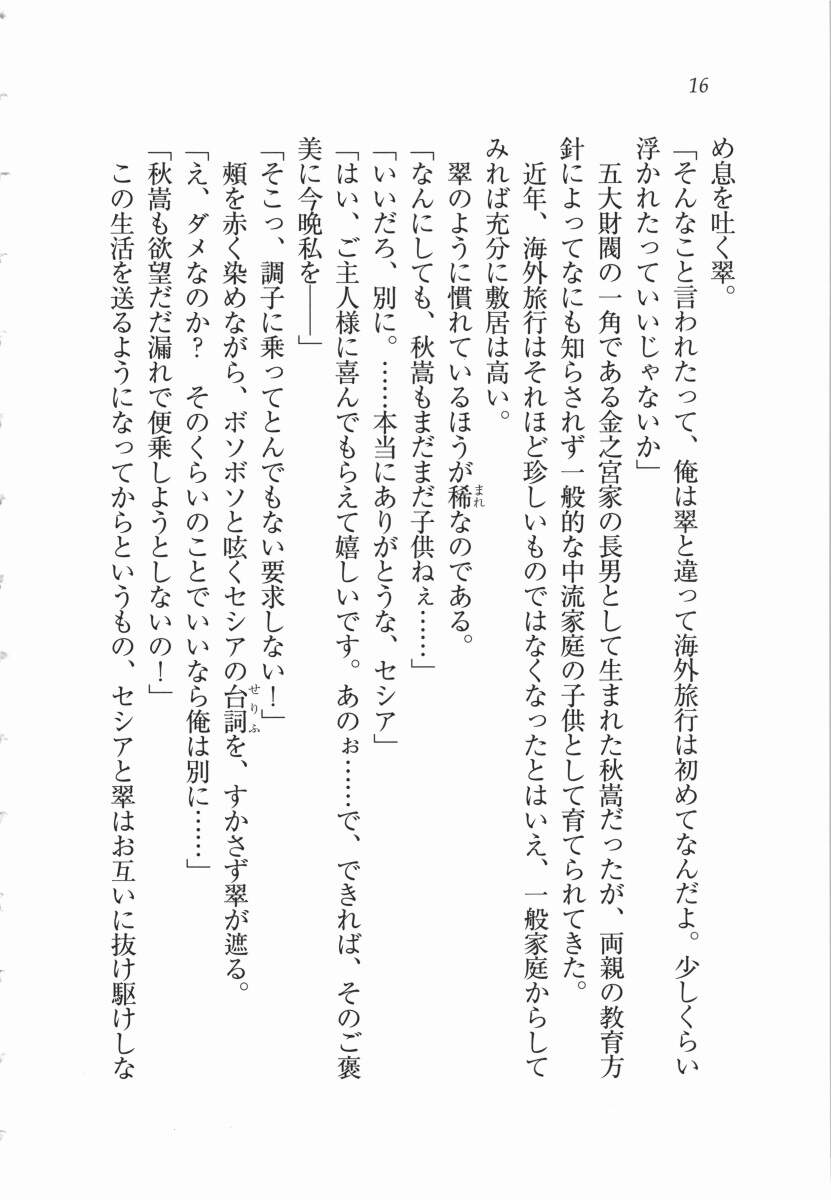 16
め息を吐く翠。
「そんなこと言われたって、俺は翠と違って海外旅行は初めてなんだよ。少しくらい
浮かれたっていいじゃないか」
五大財閥の一角である金之宮家の長男として生まれた秋嵩だったが、両親の教育方
針によってなにも知らされず一般的な中流家庭の子供として育てられてきた。
近年、海外旅行はそれほど珍しいものではなくなったとはいえ、一般家庭からして
みれば充分に敷居は高い。
翠のように慣れているほうが稀なのである。
「なんにしても、秋嵩もまだまだ子供ねぇ……」
「いいだろ、別に。……本当にありがとうな、セシア」
「はい、ご主人様に喜んでもらえて嬉しいです。あのぉ……で、できれば、そのご褒
美に今晩私を――」
「そこっ、調子に乗ってとんでもない要求しない！」
頰を赤く染めながら、ボソボソと呟くセシアの台詞を、すかさず翠が遮る。
「え、ダメなのか？　そのくらいのことでいいなら俺は別に……」
「秋嵩も欲望だだ漏れで便乗しようとしないの！」
この生活を送るようになってからというもの、セシアと翠はお互いに抜け駆けしな